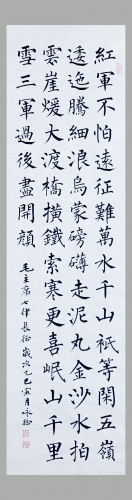 紅軍不怕遠征難萬水千山祇等閑五嶺
逶迤騰細浪烏蒙磅礴走泥丸金沙水拍
雲崖煖大渡橋橫鐵索寒更喜岷山千里
雪三軍過後盡開顔
毛主席七律長征歲次乙巳寅月